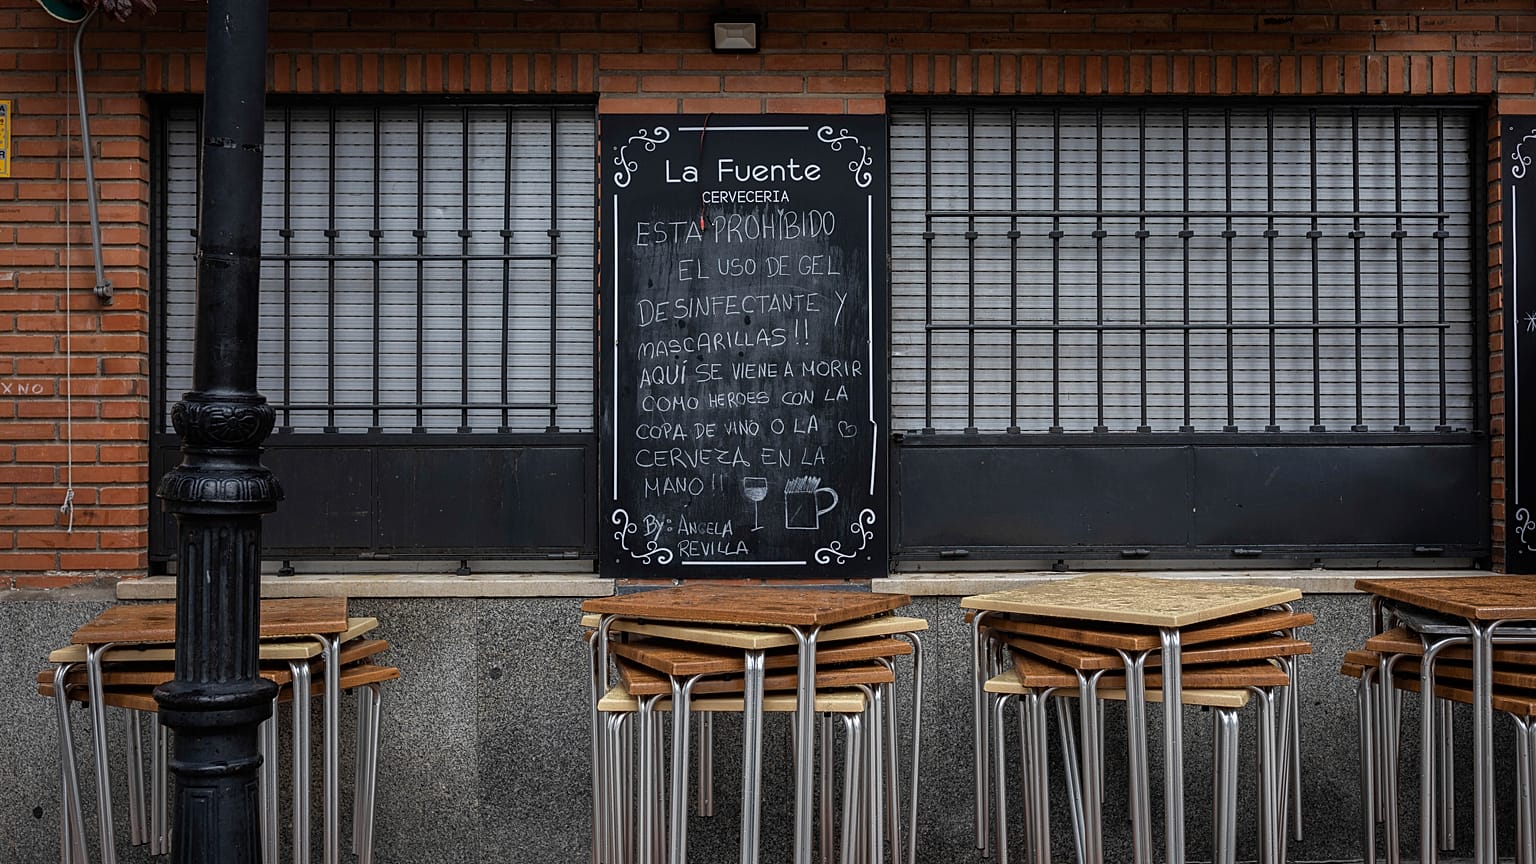 La Fuente
CERVECERIA
ESTA PROHIBIDO
EL USO DE GEL
DESINFECTANTE Y
MASCARILLAS!!
AQUÍ SE VIENE A MORIR
COMO HEROES CON LA
COPA DE VINO O LA
CERVEZA EN LA
MANO!!
BY: ANGELA
REVILLA
XNO